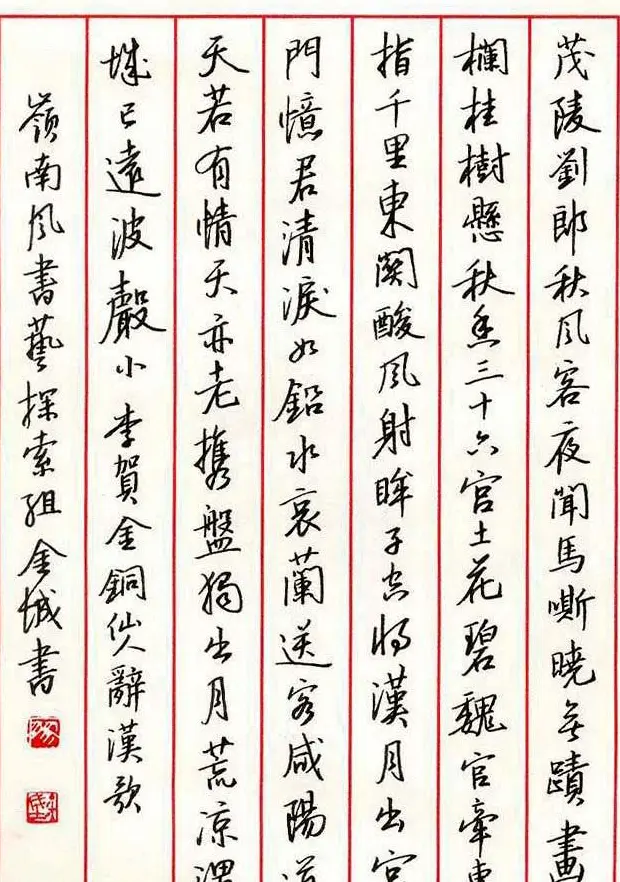 茂陵劉郎秋風客夜聞馬嘶曉無蹟畫
欄桂樹懸秋香三十六宮土花碧魏官牽車
指千里東關酸風射眸子空將漢月出宮
門憶君清淚如鉛水衰蘭送客咸陽道
天若有情天亦老携盤獨出月荒涼渭
城已遠波聲小李賀金銅仙人辭漢歌
嶺南風書藝探索組金城書